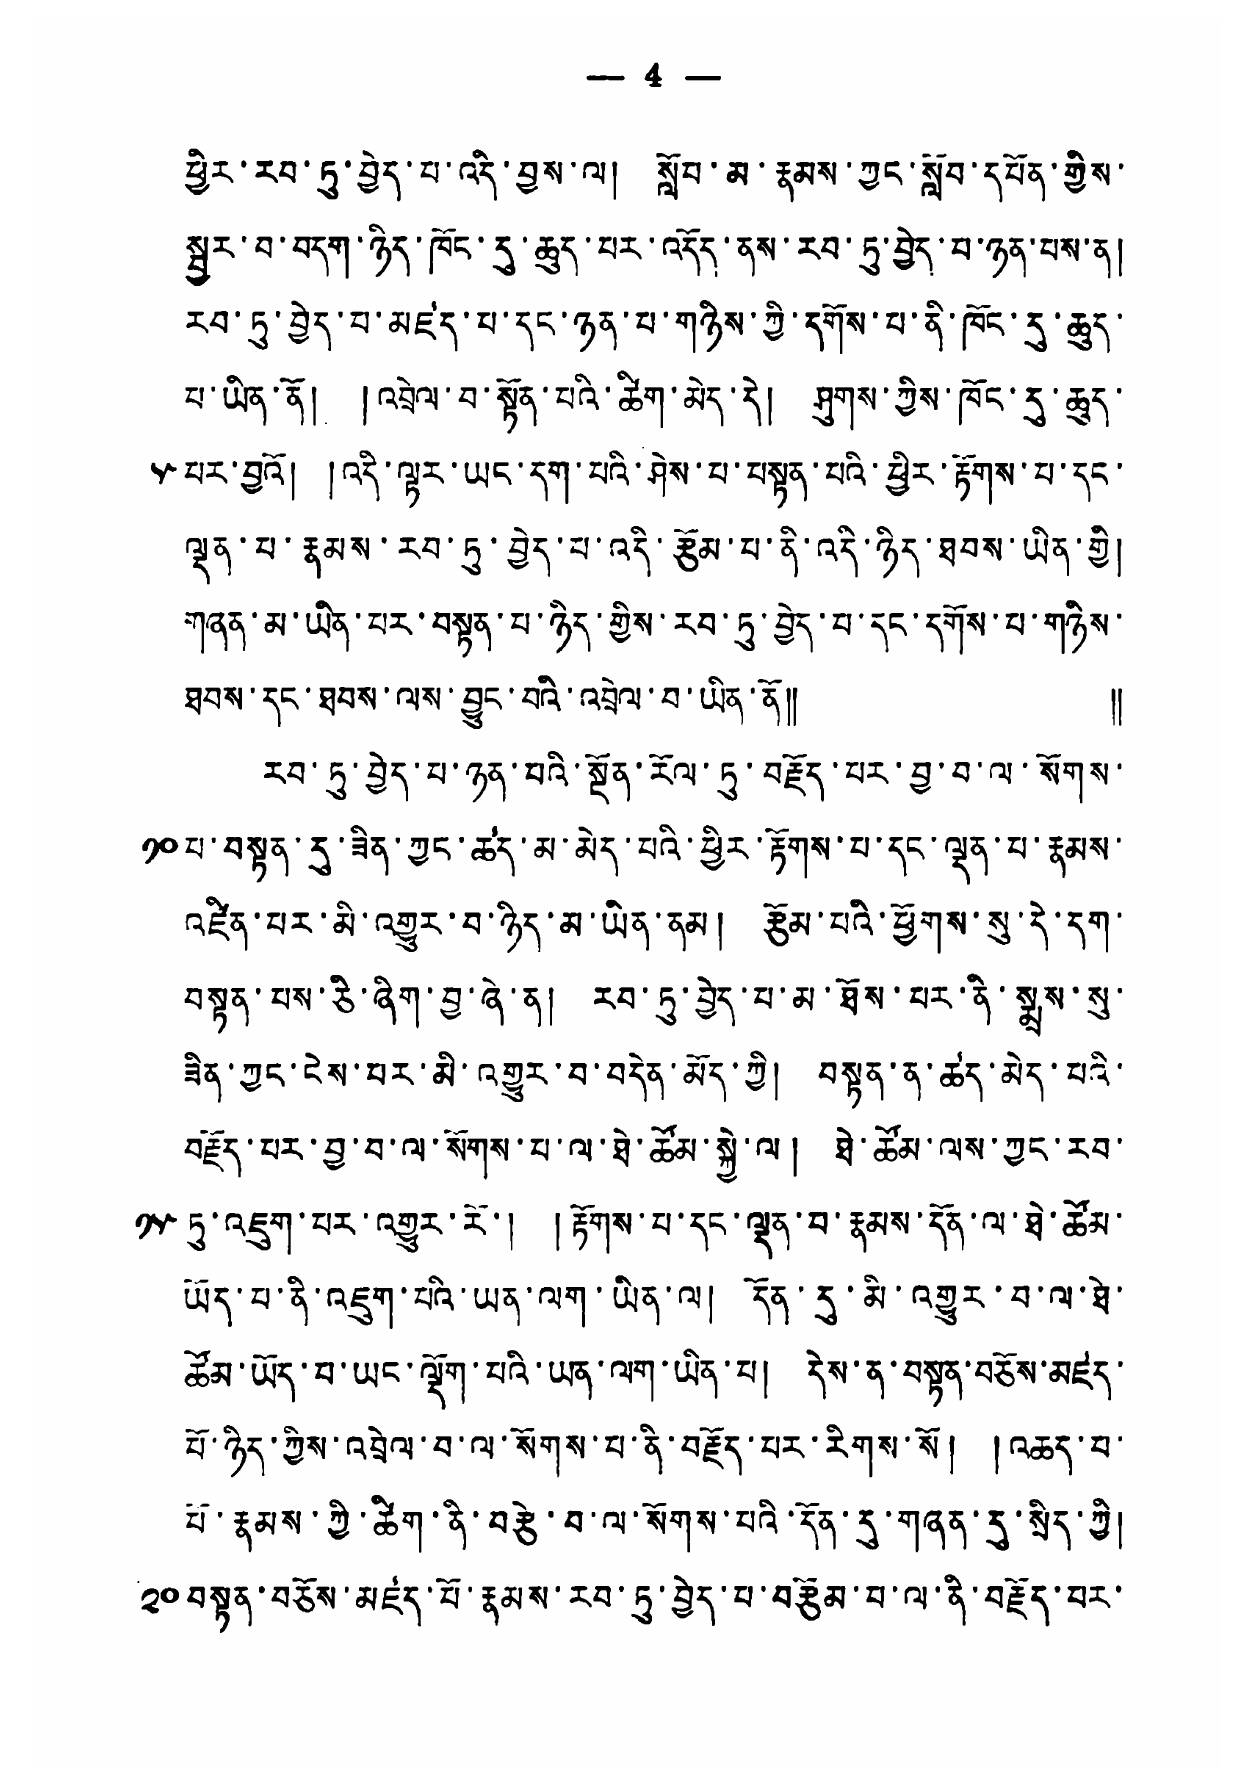 — 4 —
ཕྱིར་རབ་ཏུ་བྱེད་པ་འདི་བྱས་ལ། སློབ་མ་རྣམས་ཀྱང་སློབ་དཔོན་གྱིས་
སྦྱར་བ་བདག་ཉིད་ཁོང་དུ་ཆུད་པར་འདོད་ནས་རབ་ཏུ་བྱེད་པ་ཉན་པས་ན།
རབ་ཏུ་བྱེད་པ་མཛད་པ་དང་ཉན་པ་གཉིས་ཀྱི་དགོས་པ་ནི་ཁོང་དུ་ཆུད་
པ་ཡིན་ནོ། །འབྲེལ་བ་སྟོན་པའི་ཚིག་མེད་དེ། ཤུགས་ཀྱིས་ཁོང་དུ་ཆུད་
༥ པར་བྱའོ། །འདི་ལྟར་ཡང་དག་པའི་ཤེས་པ་བསྟན་པའི་ཕྱིར་རྟོགས་པ་དང་
ལྡན་པ་རྣམས་རབ་ཏུ་བྱེད་པ་འདི་རྩོམ་པ་ནི་འདི་ཉིད་ཐབས་ཡིན་གྱི།
གཞན་མ་ཡིན་པར་བསྟན་པ་ཉིད་གྱིས་རབ་ཏུ་བྱེད་པ་དང་དགོས་པ་གཉིས་
ཐབས་དང་ཐབས་ལས་བྱུང་བའི་འབྲེལ་བ་ཡིན་ནོ༎ ༎
རབ་ཏུ་བྱེད་པ་ཉན་པའི་སྔོན་རོལ་ཏུ་བརྗོད་པར་བྱ་བ་ལ་སོགས་
༡༠ པ་བསྟན་དུ་ཟིན་ཀྱང་ཚད་མ་མེད་པའི་ཕྱིར་རྟོགས་པ་དང་ལྡན་པ་རྣམས་
འཛིན་པར་མི་འགྱུར་བ་ཉིད་མ་ཡིན་ནམ། རྩོམ་པའི་ཕྱོགས་སུ་དེ་དག་
བསྟན་པས་ཅི་ཞིག་བྱ་ཞེ་ན། རབ་ཏུ་བྱེད་པ་མ་ཐོས་པར་ནི་སྨྲས་སུ་
ཟིན་ཀྱང་ངེས་པར་མི་འགྱུར་བ་བདེན་མོད་ཀྱི། བསྟན་ན་ཚད་མེད་པའི་
བརྗོད་པར་བྱ་བ་ལ་སོགས་པ་ལ་ཐེ་ཚོམ་སྐྱེ་ལ། ཐེ་ཚོམ་ལས་ཀྱང་རབ་
༡༥ ཏུ་འཇུག་པར་འགྱུར་རོ་། །རྟོགས་པ་དང་ལྡན་པ་རྣམས་དོན་ལ་ཐེ་ཚོམ་
ཡོད་པ་ནི་འཇུག་པའི་ཡན་ལག་ཡིན་ལ། དོན་དུ་མི་འགྱུར་བ་ལ་ཐེ་
ཚོམ་ཡོད་པ་ཡང་ལྡོག་པའི་ཡན་ལག་ཡིན་པ། དེས་ན་བསྟན་བཅོས་མཛད་
པོ་ཉིད་ཀྱིས་འབྲེལ་བ་ལ་སོགས་པ་ནི་བརྗོད་པར་རིགས་སོ། །འཆད་པ་
པོ་རྣམས་ཀྱི་ཚིག་ནི་བརྩེ་བ་ལ་སོགས་པའི་དོན་དུ་གཞན་དུ་སྲིད་ཀྱི།
༢༠ བསྟན་བཅོས་མཛད་པོ་རྣམས་རབ་ཏུ་བྱེད་པ་བརྩོམ་པ་ལ་ནི་བརྗོད་པར་